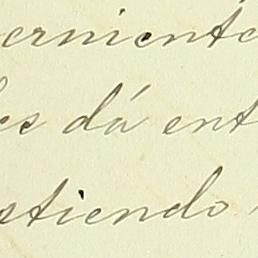 erniente
es dá ent
stiendo